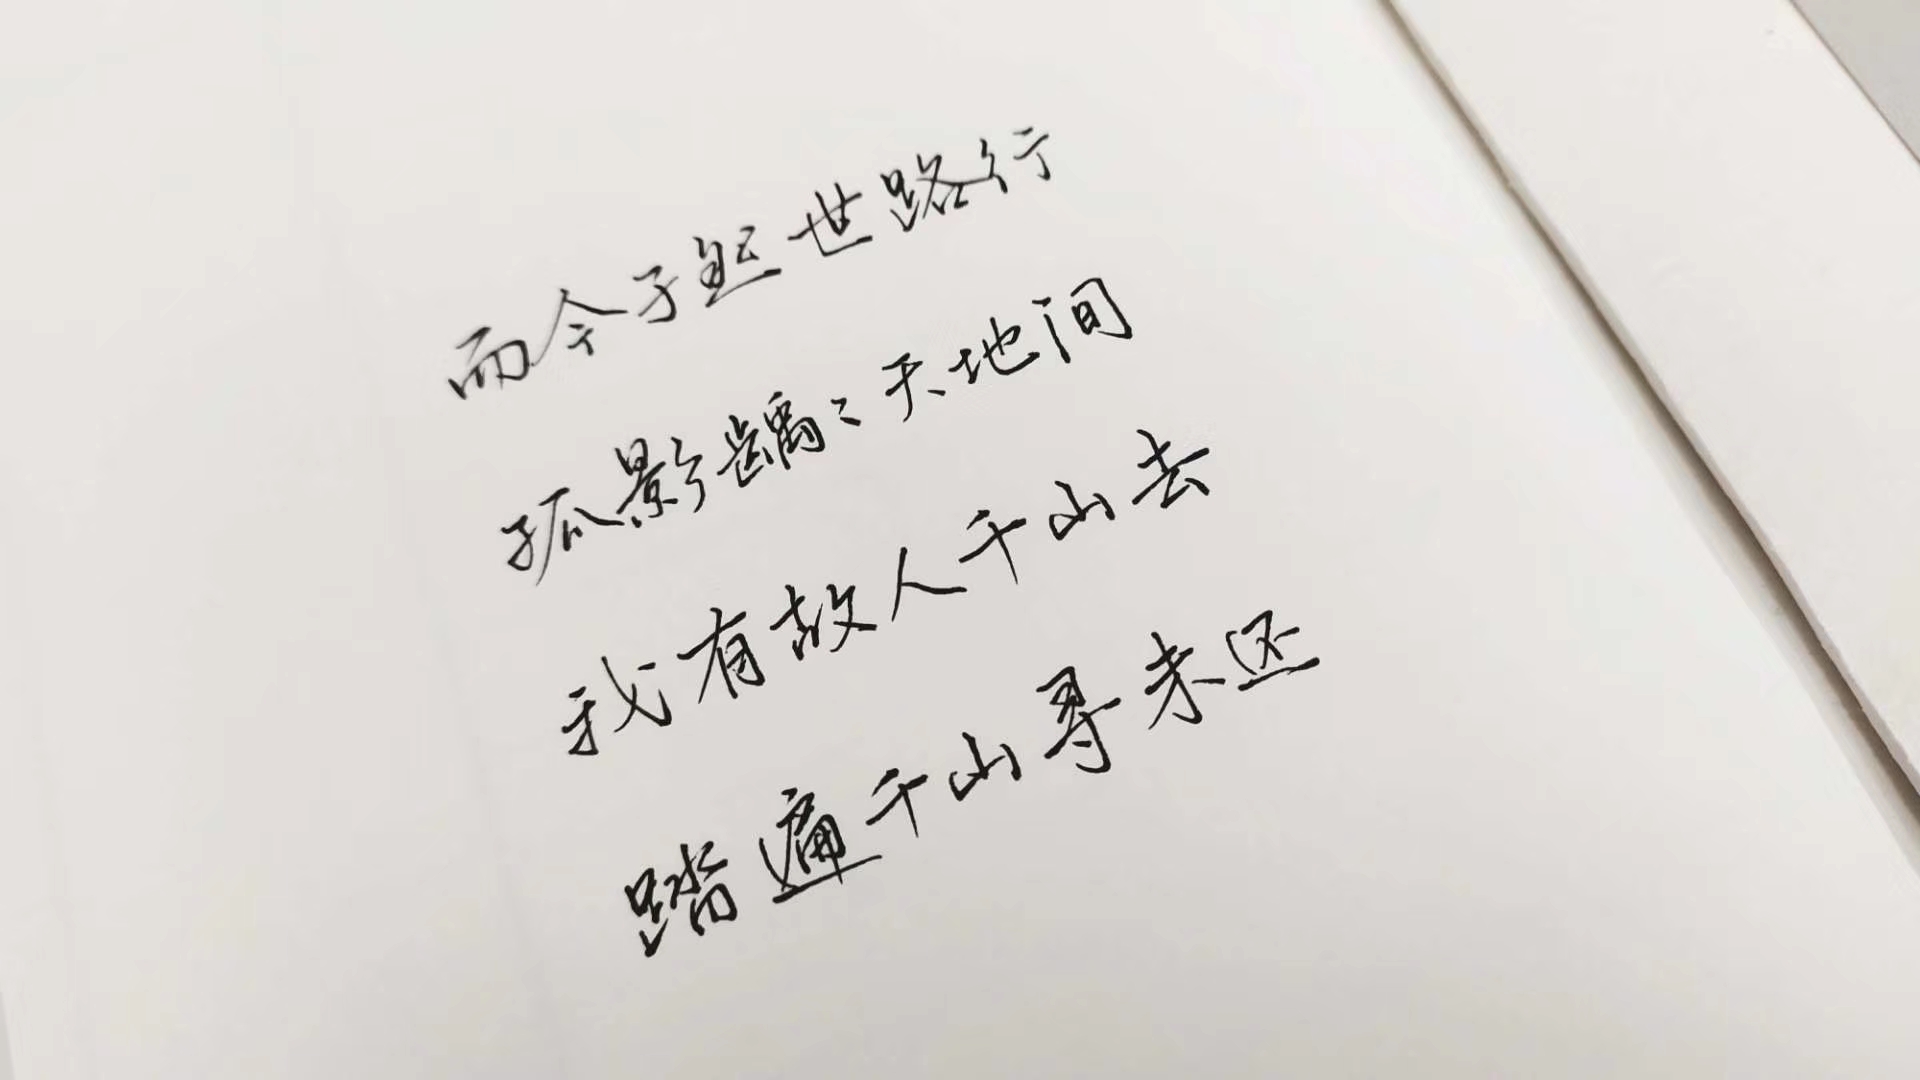 而今孑然世路行
孤影踽々天地间
我有故人千山去
踏遍千山寻未还